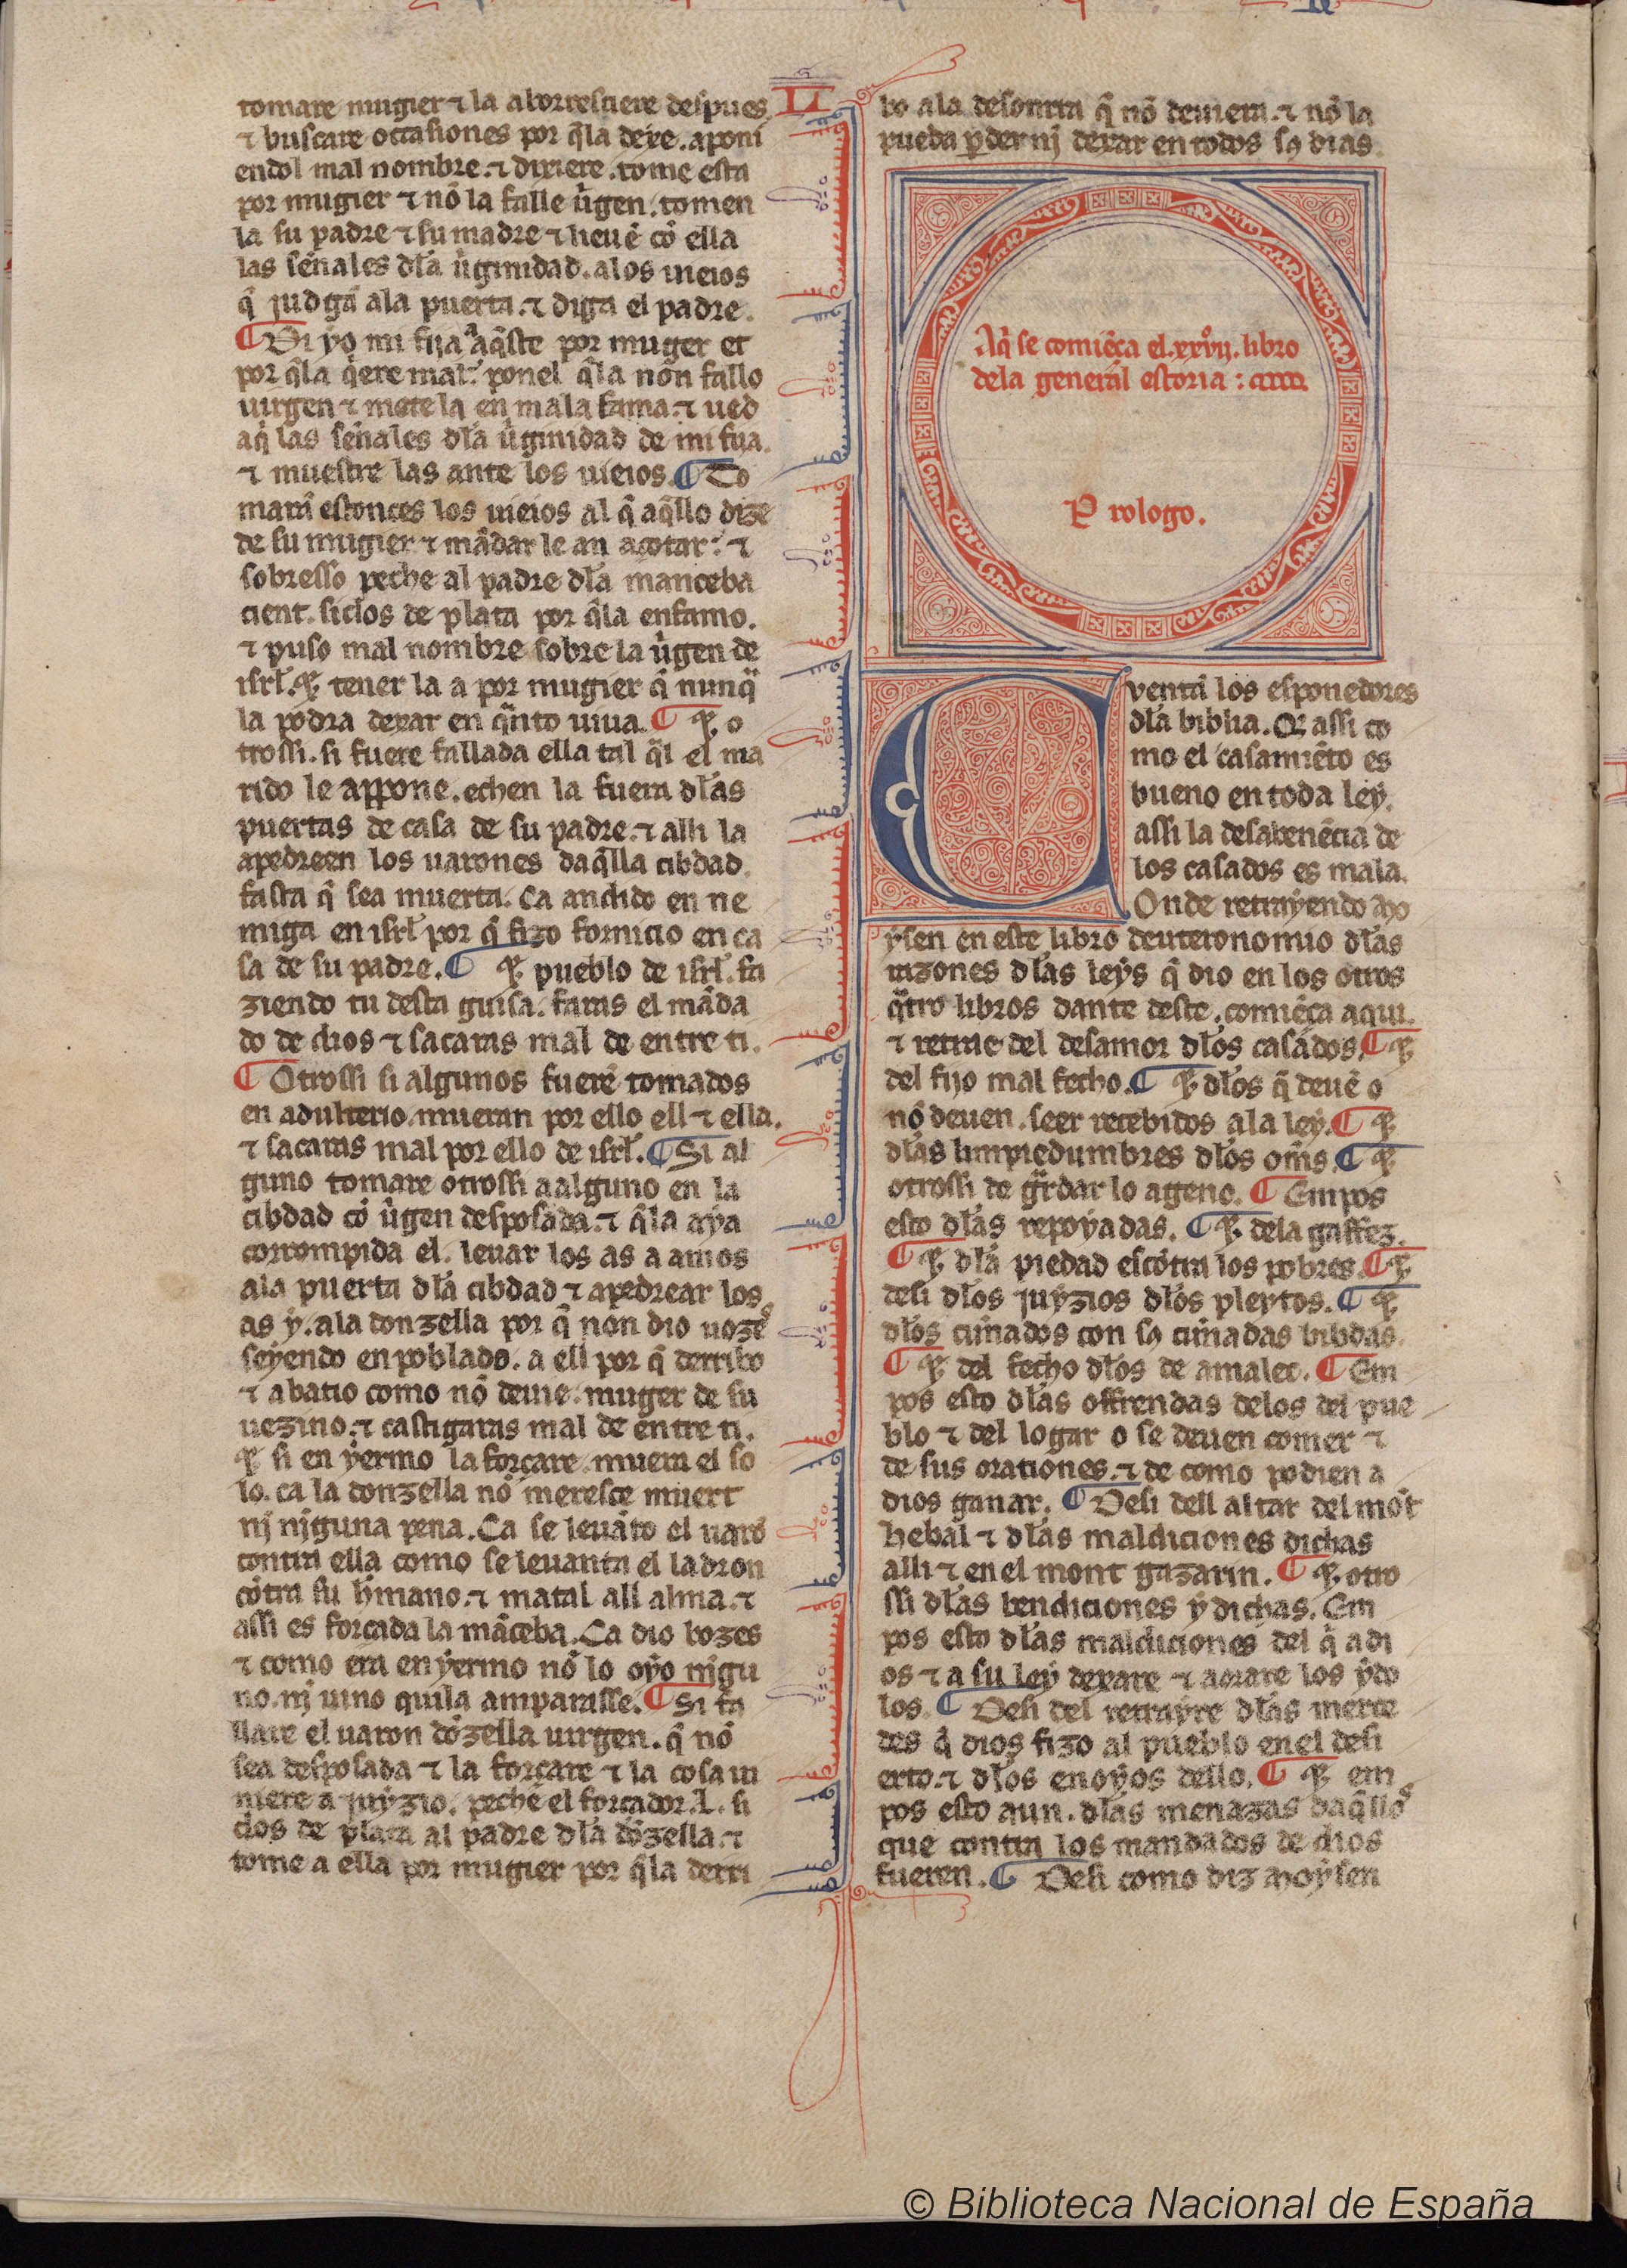 LI
tomare mugier ⁊ la aborresciere despues
⁊ buscare occasiones por q̃la dexe. aponi
endol mal nombre. ⁊ dixiere. tome esta
por mugier ⁊ nõ la falle uͥgen. tomen
la su padre ⁊ su madre ⁊ lieuẽ cõ ella
las sẽnales dła uͥginidad. alos uieios
q̃ judgã ala puerta. ⁊ diga el padre.
¶ Di yo mi fija aq̃ste por muger et
por q̃la q̃ere mal: ponel q̃la non fallo
uirgen ⁊ mete la en mala fama. ⁊ ued
aq̃ las sẽnales dła uͥginidad de mi fija.
⁊ muestre las ante los uieios. ¶ To
marã estonces los uieios al q̃ aq̃llo dize
de su mugier ⁊ mãdar le an açotar: ⁊
sobresso peche al padre dła manceba
cient. siclos de plata por q̃la enfamo.
⁊ puso mal nombre sobre la uͥgen de
isrł. ⁊ tener la a por mugier q̃ nunq̃
la podra dexar en q̃nto uiua. ¶ ⁊ o
trossi. si fuere fallada ella tal q̃l el ma
rido le appone. echen la fuera dłas
puertas de casa de su padre. ⁊ alli la
apedreen los uarones daq̃lla cibdad.
fasta q̃ sea muerta. Ca andido en ne
miga en isrł por q̃ fizo fornicio en ca
sa de su padre. ¶ ⁊ pueblo de isrł. fa
ziendo tu desta guisa. faras el mãda
do de dios ⁊ sacaras mal de entre ti.
¶ Otrossi si algunos fuerẽ tomados
en adulterio. mueran por ello ell ⁊ ella.
⁊ sacaras mal por ello de isrł. ¶ Si al
guno tomare otrossi a alguno en la
cibdad cõ uͥgen desposada. ⁊ q̃la aya
corrompida el. leuar los as a amos
ala puerta dła cibdad ⁊ apedrear los
as y. ala donzella por q̃ non dio uozes
seyendo en poblado. a ell por q̃ derribo
⁊ abatio como nõ deuie. muger de su
uezino. ⁊ castigaras mal de entre ti.
⁊ si en yermo la forçare. muera el so
lo. ca la donzella nõ meresce muert
nj njguna pena. Ca se leuãto el uarõ
contra ella como se leuanta el ladron
cõtra su hͥmano. ⁊ matal all alma. ⁊
assi es forçada la mãceba. Ca dio bozes
⁊ como era en yermo nõ lo oyo njgu
no. nj uino quila amparasse. ¶ Si fa
llare el uaron dõzella uirgen. q̃ nõ
sea desposada ⁊ la forçare ⁊ la cosa ui
niere a juyzio. peche el forçador .L. si
clos de plata al padre dła dõzella. ⁊
tome a ella por mugier por q̃la derri
bo ala desonrra q̃ nõ deuiera. ⁊ nõ la
pueda ꝑder nj dexar en todos sꝯ dias.
Aq̃ se comiẽça el .xxvij. libro
dela general estoria :
Prologo.
Cuentã los esponedores
dła biblia. Q̃ assi co
mo el casamiẽto es
bueno en toda ley.
assi la desabenẽcia de
los casados es mala.
Onde retrayendo Mo
ysen en este libro deuteronomio dłas
razones dłas leys q̃ dio en los otros
q̃tro libros dante deste. comiẽça aqui.
⁊ retrae del desamor dłos casados. ¶ ⁊
del fijo mal fecho. ¶ ⁊ dłos q̃ deuẽ o
nõ deuen. seer recebidos ala ley. ¶ ⁊
dłas limpiedumbres dłos om̃s. ¶ ⁊
otrossi de gͣrdar lo ageno. ¶ Empos
esto dłas repoyadas. ¶ ⁊ dela gaffez.
¶ ⁊ dła piedad escõtra los pobres. ¶ ⁊
desi dłos juyzios dłos pleytos. ¶ ⁊
dłos cũnados con sꝯ cũnadas bibdas.
¶ ⁊ del fecho dłos de amalec. ¶ Em
pos esto dłas offrendas delos del pue
blo ⁊ del logar o se deuen comer ⁊
de sus orationes. ⁊ de como podien a
dios ganar. ¶ Desi dell altar del mõt
hebal ⁊ dłas maldiciones dichas
alli ⁊ en el mont gazarin. ¶ ⁊ otro
ssi dłas bendiciones y dichas. Em
pos esto dłas maldiciones del q̃ a di
os ⁊ a su ley dexare ⁊ aorare los ydo
los. ¶ Desi del retrayre dłas merce
des q̃ dios fizo al pueblo en el desi
erto. ⁊ dłos enoyos dello. ¶ ⁊ em
pos esto aun. dłas menazas daq̃llos
que contra los mandados de dios
fueren. ¶ Desi como diz Moysen
© Biblioteca Nacional de España